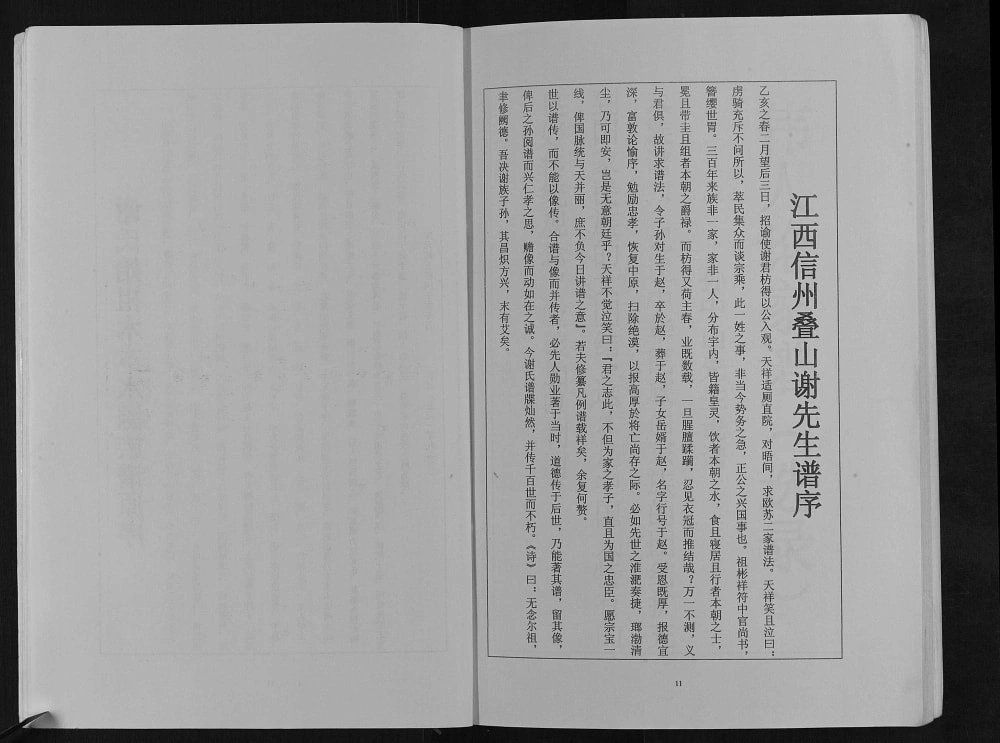 江西信州叠山谢先生谱序
乙亥之春二月望后三日，招谕使谢君枋得以公入观。天祥适厕直院，对晤间，求欧苏二家谱法。天祥笑且泣曰：
虏骑充斥不问所以，萃民集众而谈宗乘，此一姓之事，非当今势务之急，正公之兴国事也。祖彬祥符中官尚书，
簪缨世胄。三百年来族非一家，家非一人，分布宇内，皆籍皇灵，饮者本朝之水，食且寝居且行者本朝之士，
冕且带圭且组者本朝之爵禄。而枋得又荷主春，业既数载，一旦腥膻蹂躏，忍见衣冠而推结哉？万一不测，义
与君俱，故讲求谱法，令子孙对生于赵，卒於赵，葬于赵，子女岳婿于赵，名字行号于赵。受恩既厚，报德宜
深，富敦论愉序，勉励忠孝，恢复中原，扫除绝漠，以报高厚於将亡尚存之际。必如先世之淮淝奏捷，瑯渤清
尘，乃可即安，岂是无意朝廷乎？天祥不觉泣笑曰：『君之志此，不但为家之孝子，直且为国之忠臣。愿宗宝一
线，俾国脉统与天并丽，庶不负今日讲谱之意』。若夫修纂凡例谱载样矣，余复何赘。
世以谱传，而不能以像传。合谱与像而并传者，必先人勋业著于当时，道德传于后世，乃能著其谱，留其像，
俾后之孙阅谱而兴仁孝之思，赡像而动如在之诚。今谢氏谱牒灿然，并传千百世而不朽。《诗》曰：无念尔祖，
聿修阙德。吾决谢族子孙，其昌炽方兴，末有艾矣。
11